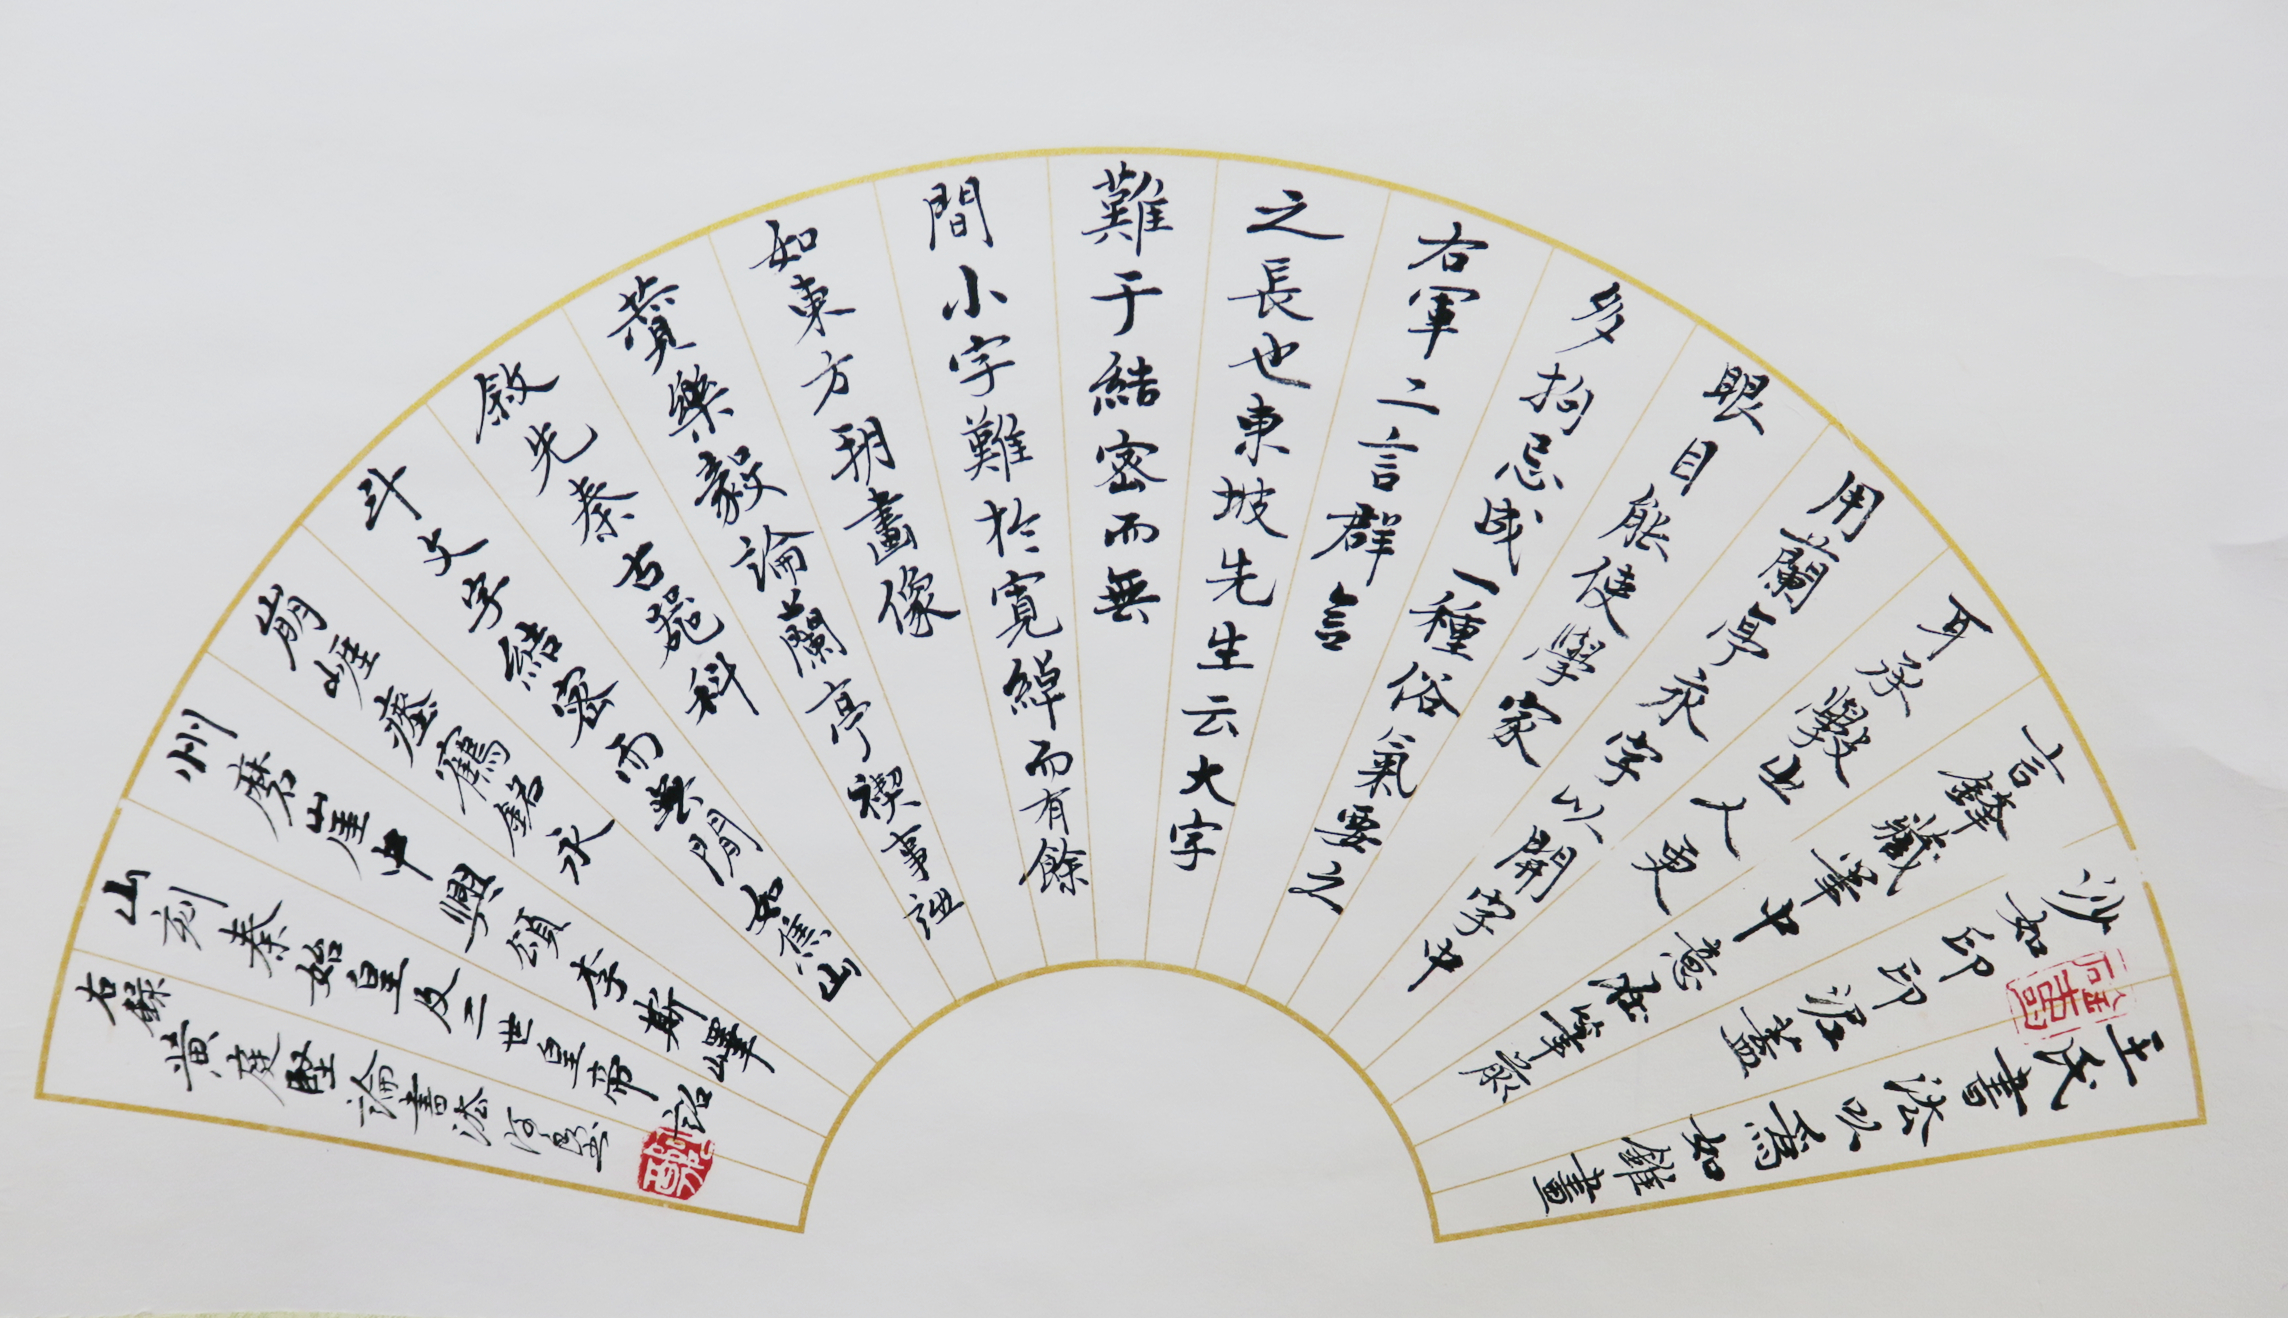 王氏書法以為如錐畫
沙如印印泥蓋
言鋒藏筆中意在筆前
耳承學之人更
用蘭亭永字以開字中
眼目能使學家
多拘忌成一種俗氣要之
右軍二言群言
之長也東坡先生云大字
難于結密而無
間小字難於寬綽而有餘
如東方朔畫像
贊樂毅論蘭亭禊事詩
敘先秦古器科
斗文字結密而無間如焦山
崩崖瘞鶴銘永
州磨崖中興頌李斯嶧
山刻秦始皇及二世皇帝詔
右錄黃庭堅論書法